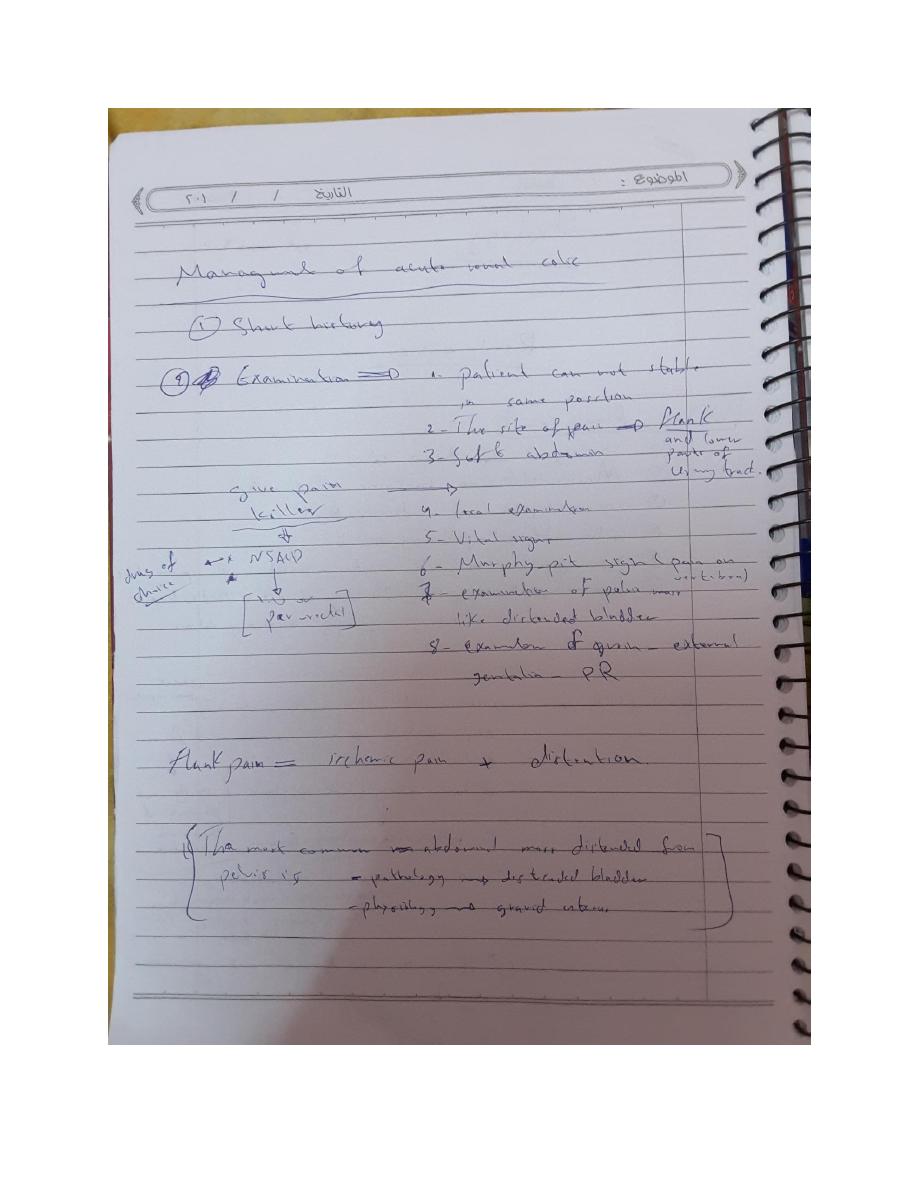 الموضوع :
التاريخ / / ٢٠١
Managment of acute renal colic
① Short history
② Examination ⇒ 1- patient can not stable
in same position
2- The site of pain ⇒ flank
and lower
parts of
urinary tract.
3- Soft abdomin
give pain
killer
4- local examination
5- Vital signs
drug of
choice
NSAID
6- Murphy sign (pain on
7- examination of mass
like distended bladder
[ per rectal ]
8- of groin - external
genitalia - PR
flank pain = ischemic pain + distention.
The most common abdominal mass distended from
pelvis is - pathology → distended bladder
- physiology → gravid uterus